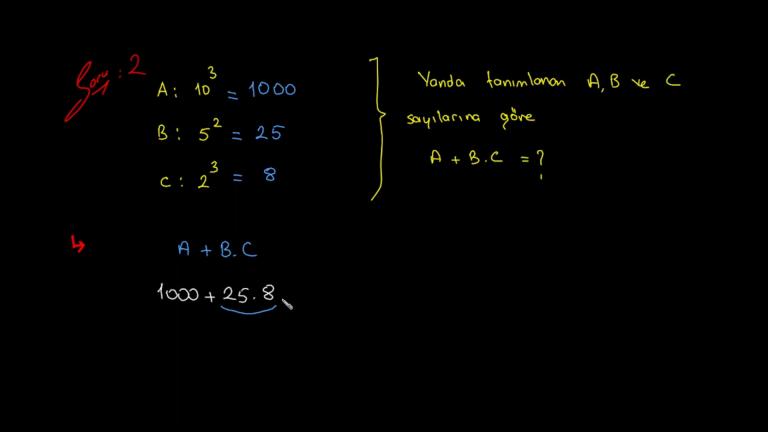 Soru : 2
A : 10³ = 1000
B : 5² = 25
C : 2³ = 8
Yanda tanımlanan A, B ve C
sayılarına göre
A + B.C = ?
A + B.C
1000 + 25.8